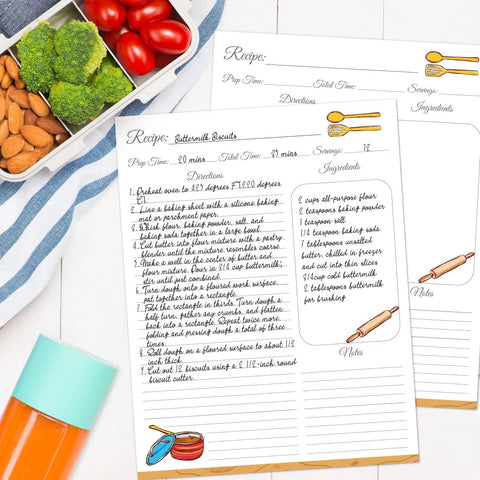 Recipe:
Prep Time:
Total Time:
Servings:
Directions
Ingredients
Notes
Recipe: Buttermilk Biscuits
Prep Time: 20 mins Total Time: 37 mins Servings: 12
Directions
1. Preheat oven to 425 degrees F (220 degrees
C).
2. Line a baking sheet with a silicone baking
mat or parchment paper.
3. Whisk flour, baking powder, salt, and
baking soda together in a large bowl.
4. Cut butter into flour mixture with a pastry
blender until the mixture resembles coarse
5. Make a well in the center of butter and
flour mixture. Pour in 3/4 cup buttermilk;
stir until just combined.
6. Turn dough onto a floured work surface,
pat together into a rectangle.
7. Fold the rectangle in thirds. Turn dough a
half turn, gather any crumbs, and flatten
back into a rectangle. Repeat twice more,
folding and pressing dough a total of three
times.
8. Roll dough on a floured surface to about 1/2
inch thick.
9. Cut out 12 biscuits using a 2 1/2-inch round
biscuit cutter.
Ingredients
2 cups all-purpose flour
2 teaspoons baking powder
1 teaspoon salt
1/4 teaspoon baking soda
7 tablespoons unsalted
butter, chilled in freezer
and cut into thin slices
3/4cup cold buttermilk
2 tablespoons buttermilk
for brushing
Notes